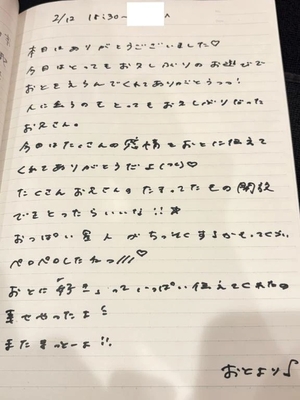 2/12 18:30〜
本日はありがとうございました♡
今日はとってもお久しぶりのお遊びで
おとをえらんでくれてありがとうっっ!
人に会うのもとってもお久しぶりだった
お兄さん。
今日はたくさんの感情をおとに伝えて
くれてありがとうだよ
たくさんお兄さんのたまってたもの開放
できとったらいいな!!
おっぱい星人が
ペロペロしたねっ///♡
おとに好きっていっぱい伝えてくれたの
幸せやったよ
またまっとーよ!!
おとより♪